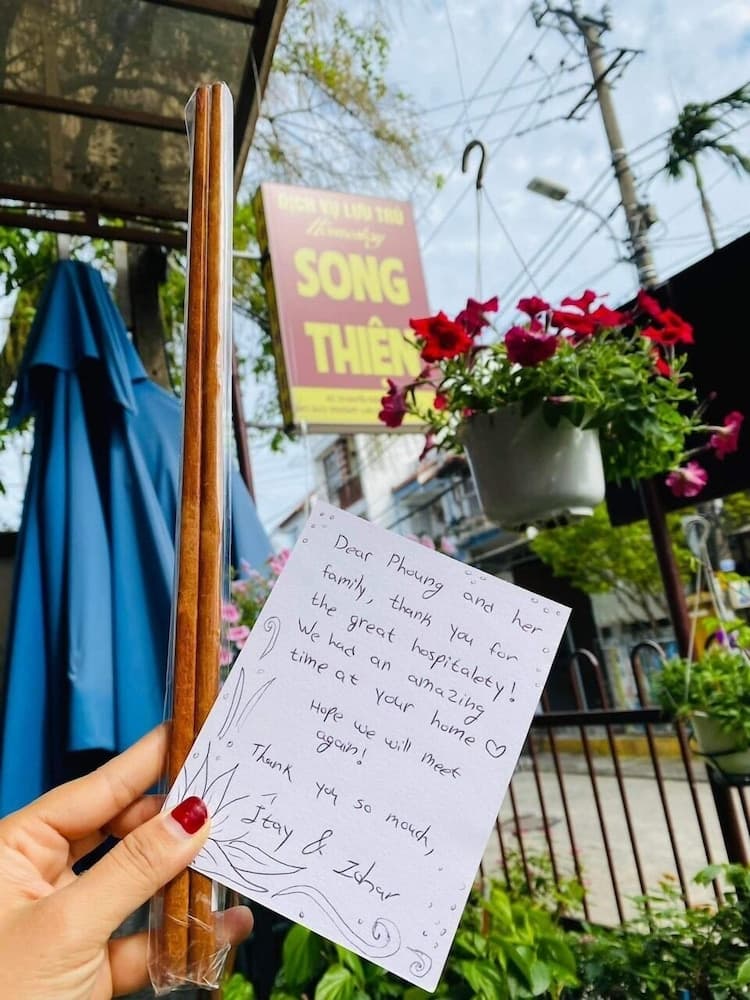 DỊCH VỤ LƯU TRÚ
Homestay
SONG
THIÊN
Dear Phoung and her
family, thank you for
the great hospitalety!
We had an amazing
time at your home ♡
Hope we will meet
again!
Thank you so mouch,
Itay & Zohar